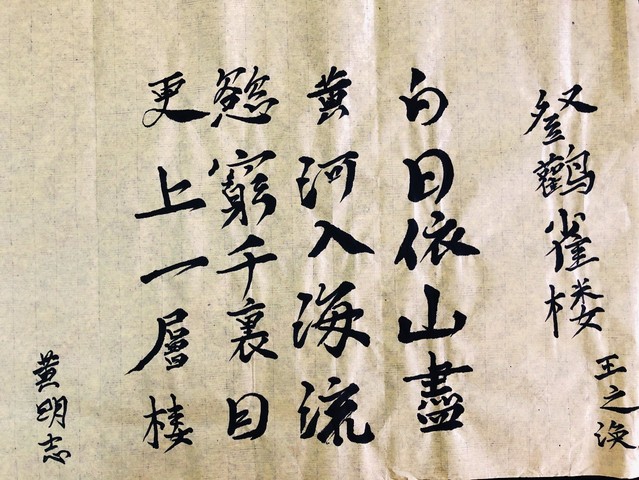 登鸛雀楼
王之涣
白日依山盡
黄河入海流
慾窮千裏目
更上一層楼
黄明志